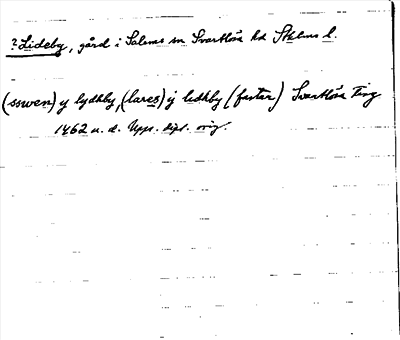 ? Lideby, gård i Salems sn Svartlösa hd Sthlms l.
(sswen) y lydhby, (lares) y lidhby (fastar) Svartlösa Ting
1462 u. d. Upps. dipl. orig.